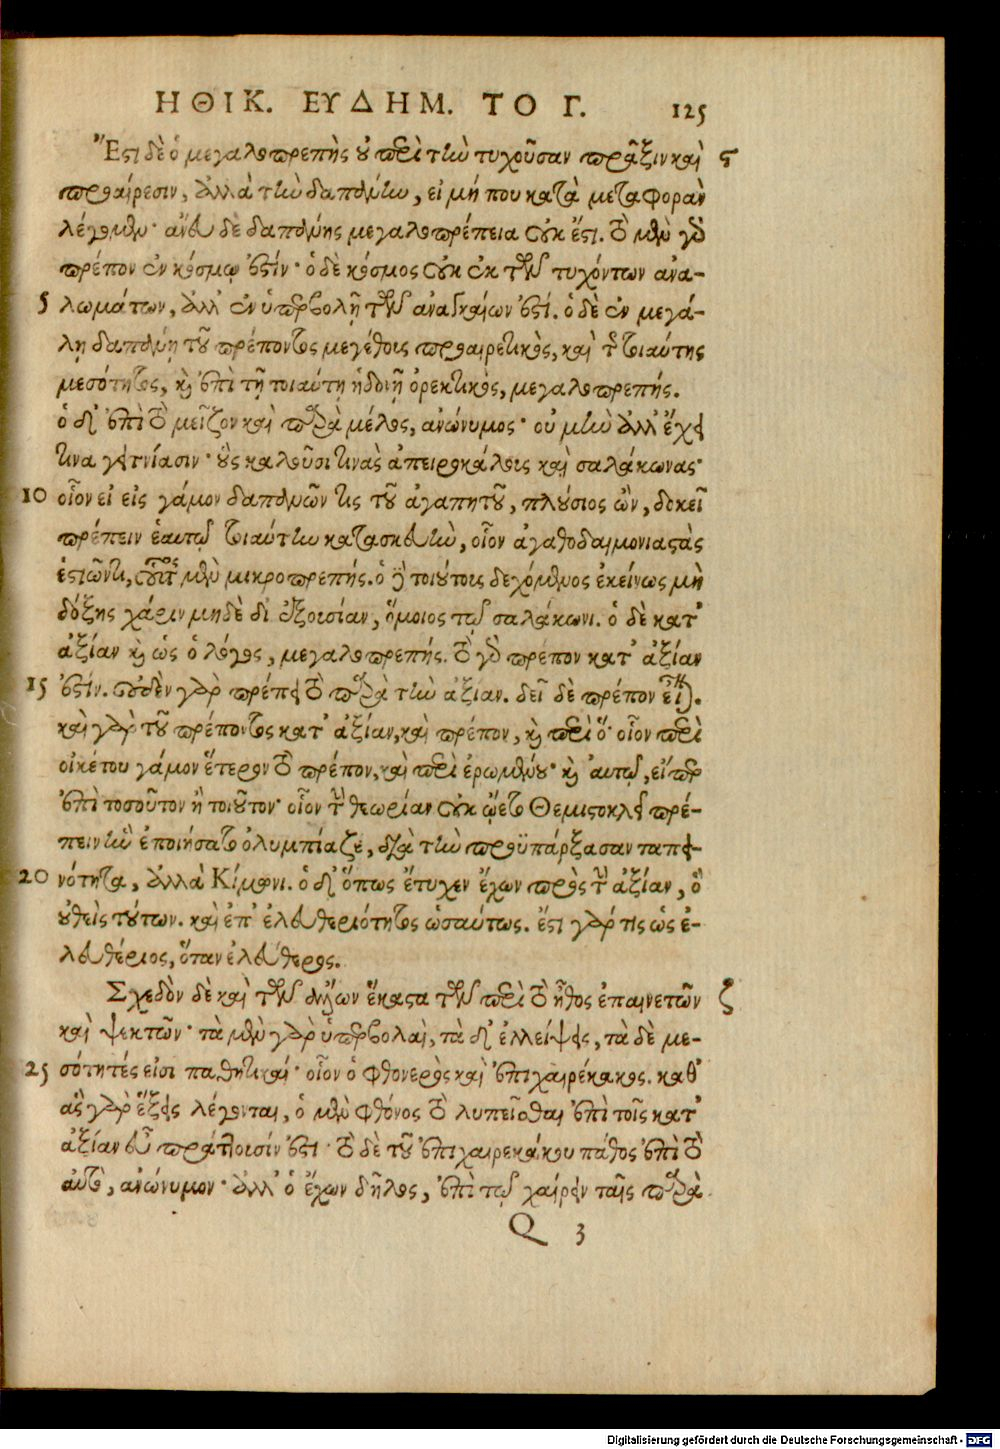 ΗΘΙΚ. ΕΥΔΗΜ. ΤΟ Γ. 125
Ἔστι δὲ ὁ μεγαλοπρεπὴς οὐ περὶ τὴν τυχοῦσαν πρᾶξιν καὶ ς
προαίρεσιν, ἀλλὰ τὴν δαπάνην, εἰ μή που κατὰ μεταφορὰν
λέγομεν· ἄνευ δὲ δαπάνης μεγαλοπρέπεια οὐκ ἔστι. τὸ μὲν γὰρ
πρέπον ἐν κόσμῳ ἐστίν· ὁ δὲ κόσμος οὐκ ἐκ τῶν τυχόντων ἀνα-
5 λωμάτων, ἀλλ' ἐν ὑπερβολῇ τῶν ἀναγκαίων ἐστί. ὁ δὲ ἐν μεγά-
λῃ δαπάνῃ τοῦ πρέποντος μεγέθους προαιρετικὸς, καὶ τῆς τοιαύτης
μεσότητος, καὶ ἐπὶ τῇ τοιαύτῃ ἡδονῇ ὀρεκτικὸς, μεγαλοπρεπής.
ὁ δ' ἐπὶ τὸ μεῖζον καὶ παρὰ μέλος, ἀνώνυμος· οὐ μὴν ἀλλ' ἔχει
τινα γειτνίασιν· οὓς καλοῦσι τινὰς ἀπειροκάλους καὶ σαλάκωνας·
10 οἷον εἰ εἰς γάμον δαπανῶν τις τοῦ ἀγαπητοῦ, πλούσιος ὢν, δοκεῖ
πρέπειν ἑαυτῷ τοιαύτην κατασκευὴν, οἷον ἀγαθοδαιμονιαστὰς
ἑστιῶντι, οὗτος μὲν μικροπρεπής. ὁ δὲ τοιούτους δεχόμενος ἐκείνως μὴ
δόξης χάριν μηδὲ δι' ἐξουσίαν, ὅμοιος τῷ σαλάκωνι. ὁ δὲ κατ'
ἀξίαν καὶ ὡς ὁ λόγος, μεγαλοπρεπής. τὸ γὰρ πρέπον κατ' ἀξίαν
15 ἐστίν. οὐδὲν γὰρ πρέπει τὸ παρὰ τὴν ἀξίαν. δεῖ δὲ πρέπον εἶναι.
καὶ γὰρ τοῦ πρέποντος κατ' ἀξίαν, καὶ πρέπον, καὶ περὶ ὅ· οἷον περὶ
οἰκέτου γάμον ἕτερον τὸ πρέπον, καὶ περὶ ἐρωμένου· καὶ αὑτῷ, εἴπερ
ἐπὶ τοσοῦτον ἢ τοιοῦτον· οἷον τὴν θεωρίαν οὐκ ᾤετο Θεμιστοκλεῖ πρέ-
πειν ἣν ἐποιήσατο ὀλυμπίαζε, διὰ τὴν προϋπάρξασαν ταπει-
20 νότητα, ἀλλὰ Κίμωνι. ὁ δ' ὅπως ἔτυχεν ἔχων πρὸς τὴν ἀξίαν, ὃ
οὐθεὶς τούτων. καὶ ἐπ' ἐλευθεριότητος ὡσαύτως. ἔστι γάρ τις ὡς ἐ-
λευθέριος, ὅταν ἐλεύθερος.
Σχεδὸν δὲ καὶ τῶν ἄλλων ἕκαστα τῶν περὶ τὸ ἦθος ἐπαινετῶν ζ
καὶ ψεκτῶν· τὰ μὲν γὰρ ὑπερβολαὶ, τὰ δ' ἐλλείψεις, τὰ δὲ με-
25 σότητές εἰσι παθητικαί· οἷον ὁ φθονερὸς καὶ ἐπιχαιρέκακος. καθ'
ἃς γὰρ ἕξεις λέγονται, ὁ μὲν φθόνος τὸ λυπεῖσθαι ἐπὶ τοῖς κατ'
ἀξίαν εὖ πράττουσίν ἐστι· τὸ δὲ τοῦ ἐπιχαιρεκάκου πάθος ἐπὶ τὸ
αὐτὸ, ἀνώνυμον· ἀλλ' ὁ ἔχων δῆλος, ἐπὶ τῷ χαίρειν ταῖς παρὰ
Q 3
Digitalisierung gefördert durch die Deutsche Forschungsgemeinschaft - DFG